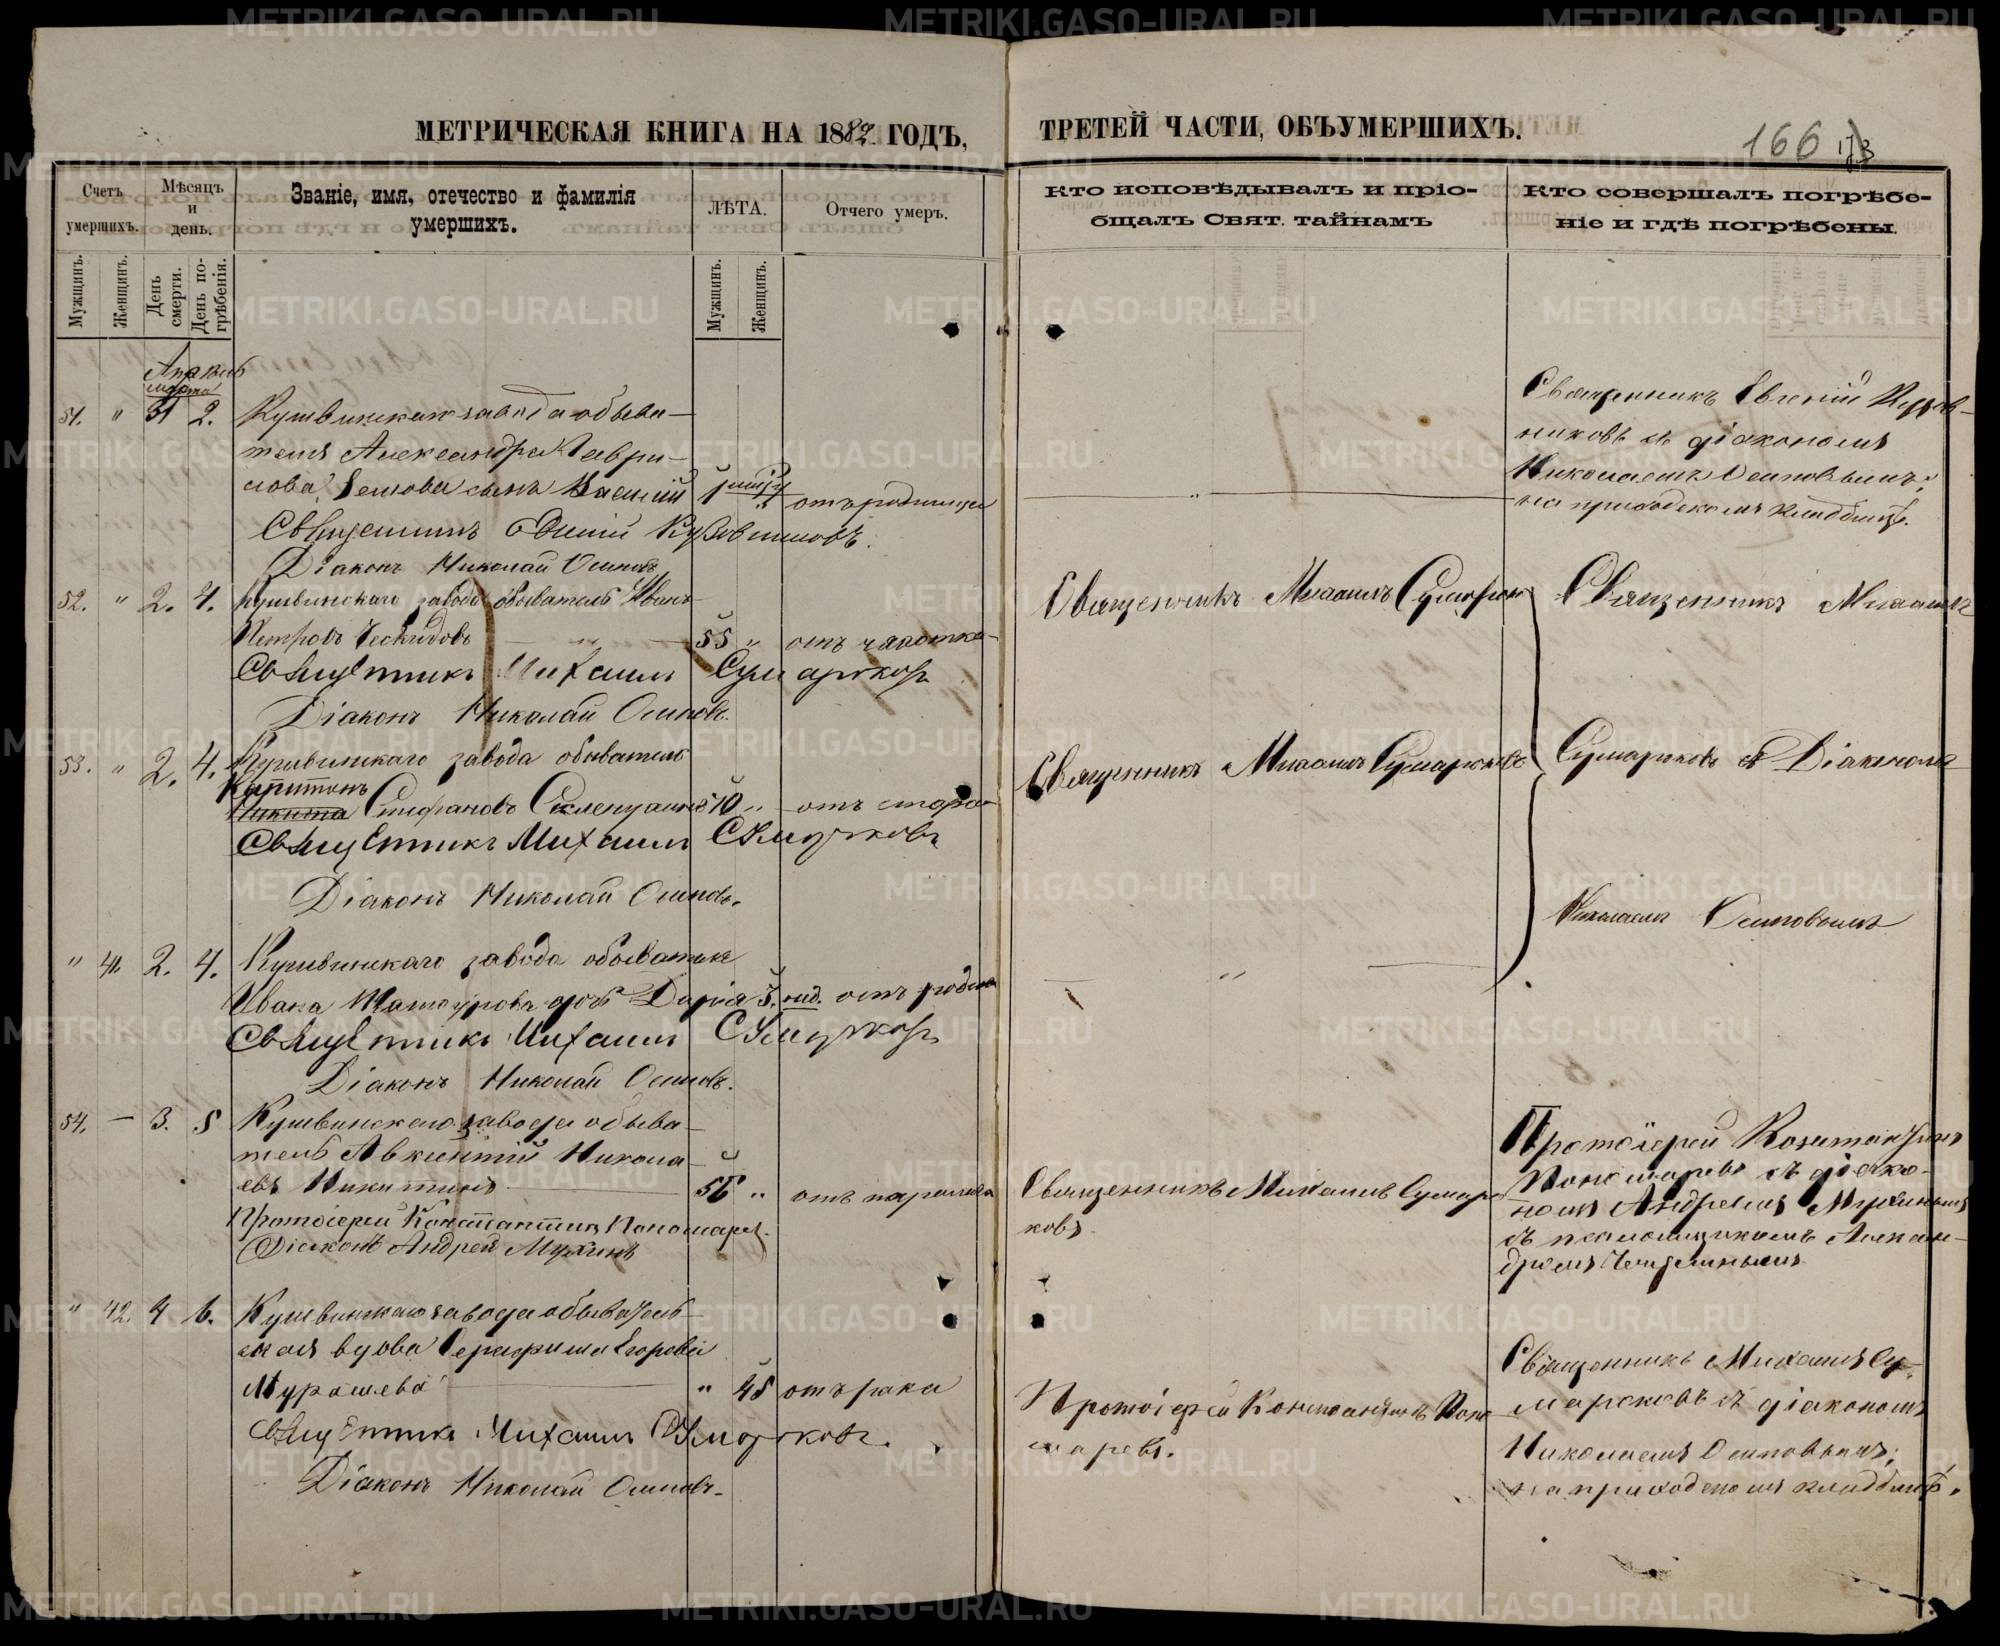 МЕТРИЧЕСКАЯ КНИГА НА 1882 ГОДЪ, ТРЕТЕЙ ЧАСТИ, ОБЪУМЕРШИХЪ.
166
Счетъ умершихъ.
Мѣсяцъ и день.
Званіе, имя, отечество и фамилія умершихъ.
ЛѢТА.
Отчего умеръ.
Кто исповѣдывалъ и пріо-
бщалъ Свят. тайнамъ
Кто совершалъ погрѣбе-
ніе и гдѣ погрѣбены.
Мужщинъ.
Женщинъ.
День смерти.
День по-
грѣбенія.
Мужщинъ.
Женщинъ.
Апрѣль
марта
51. " 31 2. Кушвинскаго завода обыва-
теля Александра Гаври-
лова сынъ Василій 1 отъ родимца
Священникъ Евгеній Кудрв-
никовъ съ діакономъ
Николаемъ Осиповымъ;
на приходскомъ кладбищѣ.
Діаконъ Николай Осиповъ
52. " 2. 4. Кушвинскаго завода обыватель Иванъ
Петровъ 55 " отъ чахотки
Священникъ Михаилъ Сумароковъ
Діаконъ Николай Осиповъ.
Священникъ Михаилъ Сумароков
Священникъ Михаилъ
53. " 2. 4. Кушвинскаго завода обыватель
Капитонъ
Никита Стефановъ 70 " отъ старос
Священникъ Михаилъ Сумароковъ
Діаконъ Николай Осиповъ.
Священникъ Михаилъ Сумароковъ
Сумароковъ съ Діакономъ
Николаемъ Осиповымъ
" 41. 2. 4. Кушвинскаго завода обывателя
Ивана дочь Дарія 3. нед. отъ родим
Священникъ Михаилъ Сумароковъ
Діаконъ Николай Осиповъ.
54. — 3. 5 Кушвинскаго завода обыва-
тель Авксентій Никола-
евъ Никитинъ 56 " отъ паралича
Протоіерей Константинъ Пономаревъ.
Діаконъ Андрей Мухинъ
Священникъ Михаилъ Сумаро
ковъ
Протоіерей Константинъ
Пономаревъ съ діако-
номъ Андреемъ Мухинымъ
съ псаломщикомъ Алексан-
дромъ
" 42. 4 6. Кушвинскаго завода обыватель-
ская вдова Серафима Егорова
Мурашева " 45 отъ рака
Священникъ Михаилъ Сумароковъ.
Діаконъ Николай Осиповъ.
Протоіерей Константинъ Поно
маревъ.
Священникъ Михаилъ Су-
мароковъ съ діакономъ
Николаемъ Осиповымъ;
на приходскомъ кладбищѣ.
METRIKI.GASO-URAL.RU